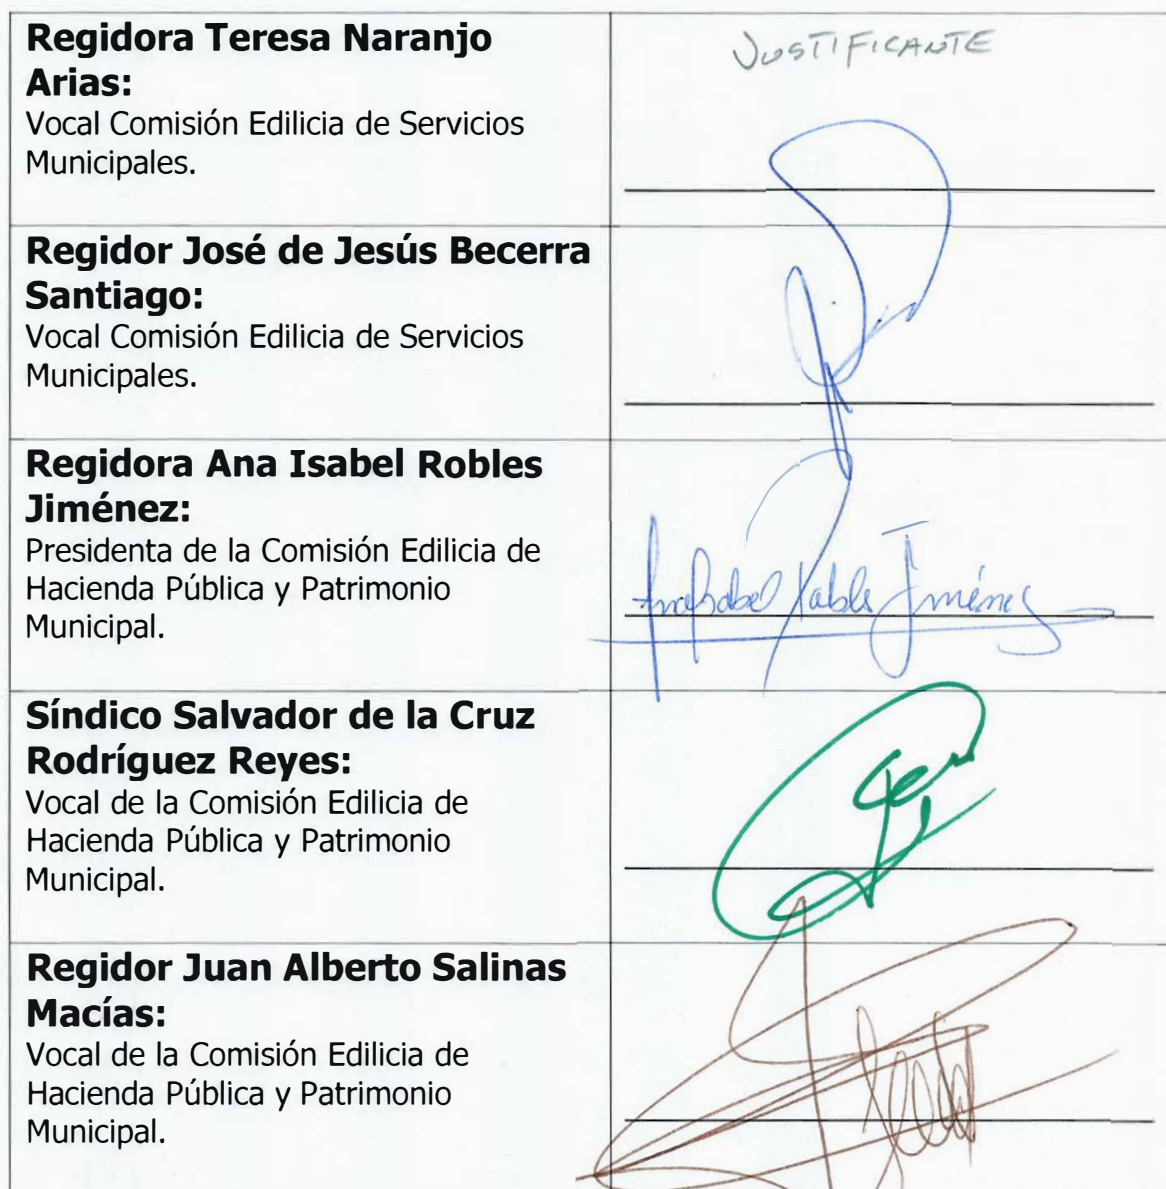 Regidora Teresa Naranjo
Arias:
Vocal Comisión Edilicia de Servicios
Municipales.
JUSTIFICANTE
Regidor José de Jesús Becerra
Santiago:
Vocal Comisión Edilicia de Servicios
Municipales.
Regidora Ana Isabel Robles
Jiménez:
Presidenta de la Comisión Edilicia de
Hacienda Pública y Patrimonio
Municipal.
Ana Isabel Robles Jiménez
Síndico Salvador de la Cruz
Rodríguez Reyes:
Vocal de la Comisión Edilicia de
Hacienda Pública y Patrimonio
Municipal.
Regidor Juan Alberto Salinas
Macías:
Vocal de la Comisión Edilicia de
Hacienda Pública y Patrimonio
Municipal.